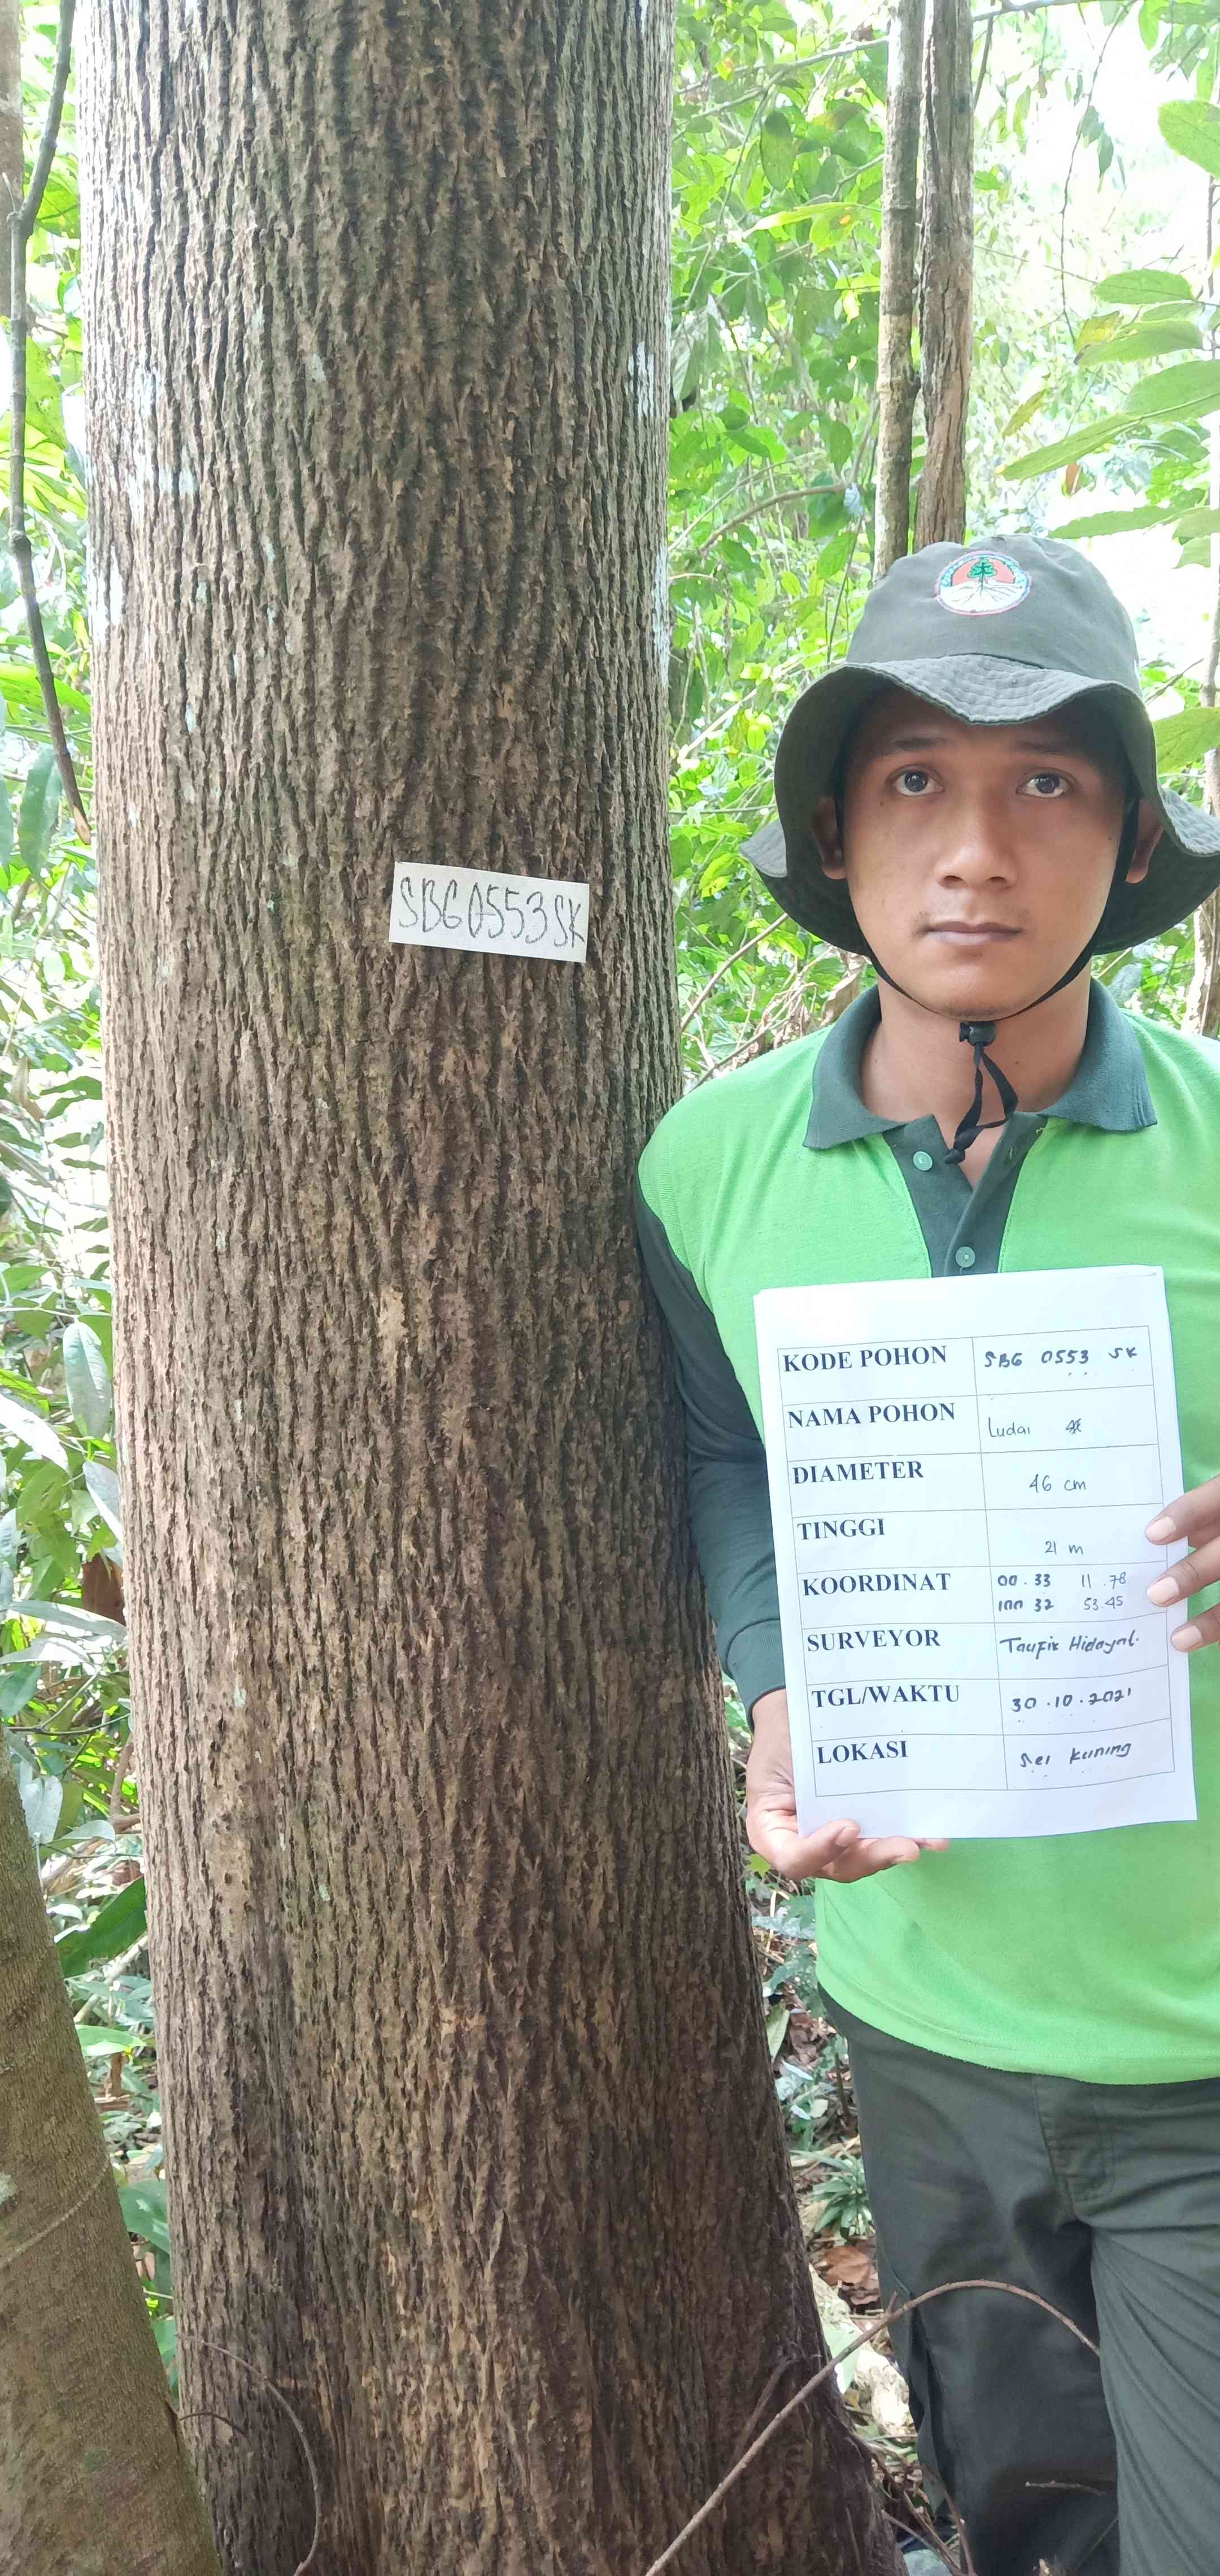 SBG0553SK
KODE POHON SBG 0553 SK
NAMA POHON Ludai
DIAMETER 46 cm
TINGGI 21 m
KOORDINAT 00.33 11.78
100 32 53.45
SURVEYOR Taufik Hidayat.
TGL/WAKTU 30.10.2021
LOKASI Sei Kuning